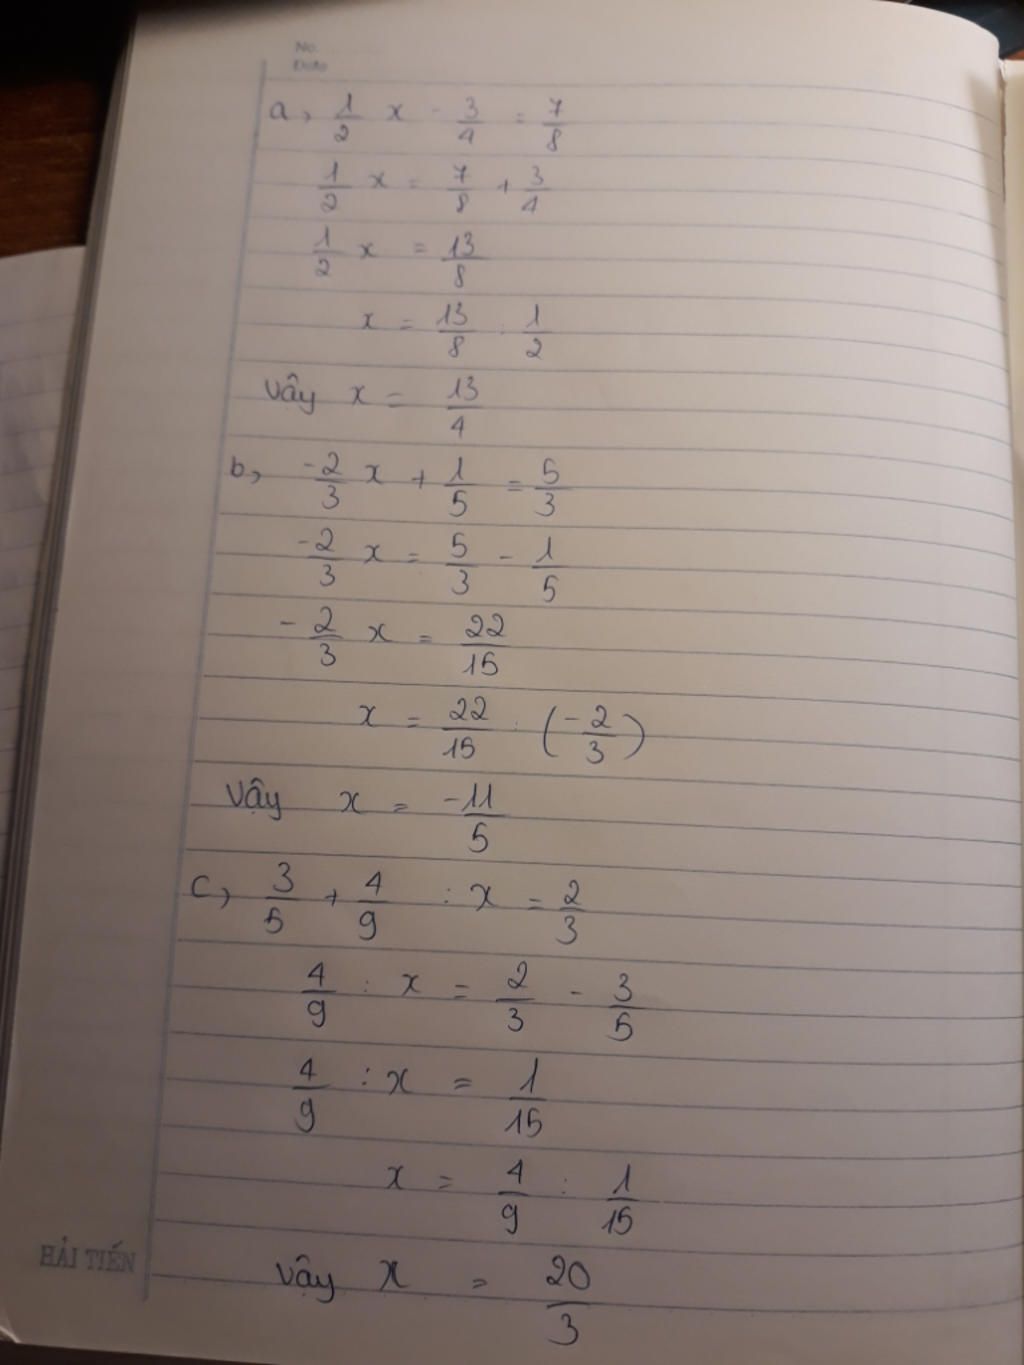 No.
Date
a, 1/2 x - 3/4 = 7/8
1/2 x = 7/8 + 3/4
1/2 x = 13/8
x = 13/8 : 1/2
Vậy x = 13/4
b, -2/3 x + 1/5 = 5/3
-2/3 x = 5/3 - 1/5
-2/3 x = 22/15
x = 22/15 : (-2/3)
Vậy x = -11/5
c, 3/5 + 4/9 : x = 2/3
4/9 : x = 2/3 - 3/5
4/9 : x = 1/15
x = 4/9 : 1/15
Vậy x = 20/3
HẢI TIẾN